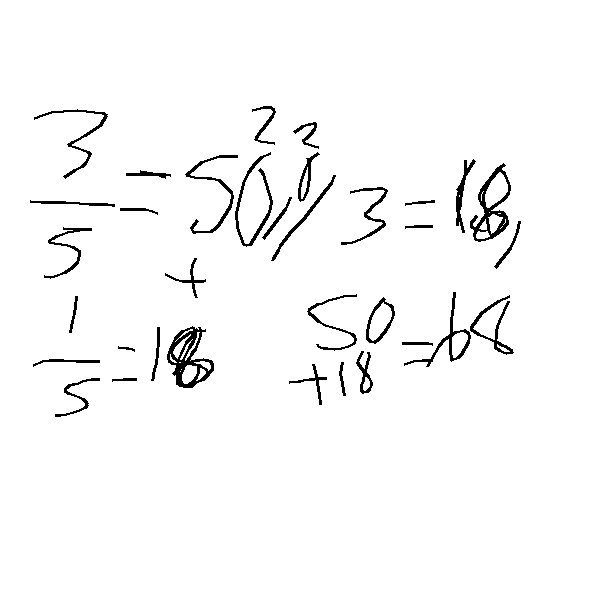 3/5 = 50, / 3 = 18,
+
1/5 = 18
50
+18 = 68